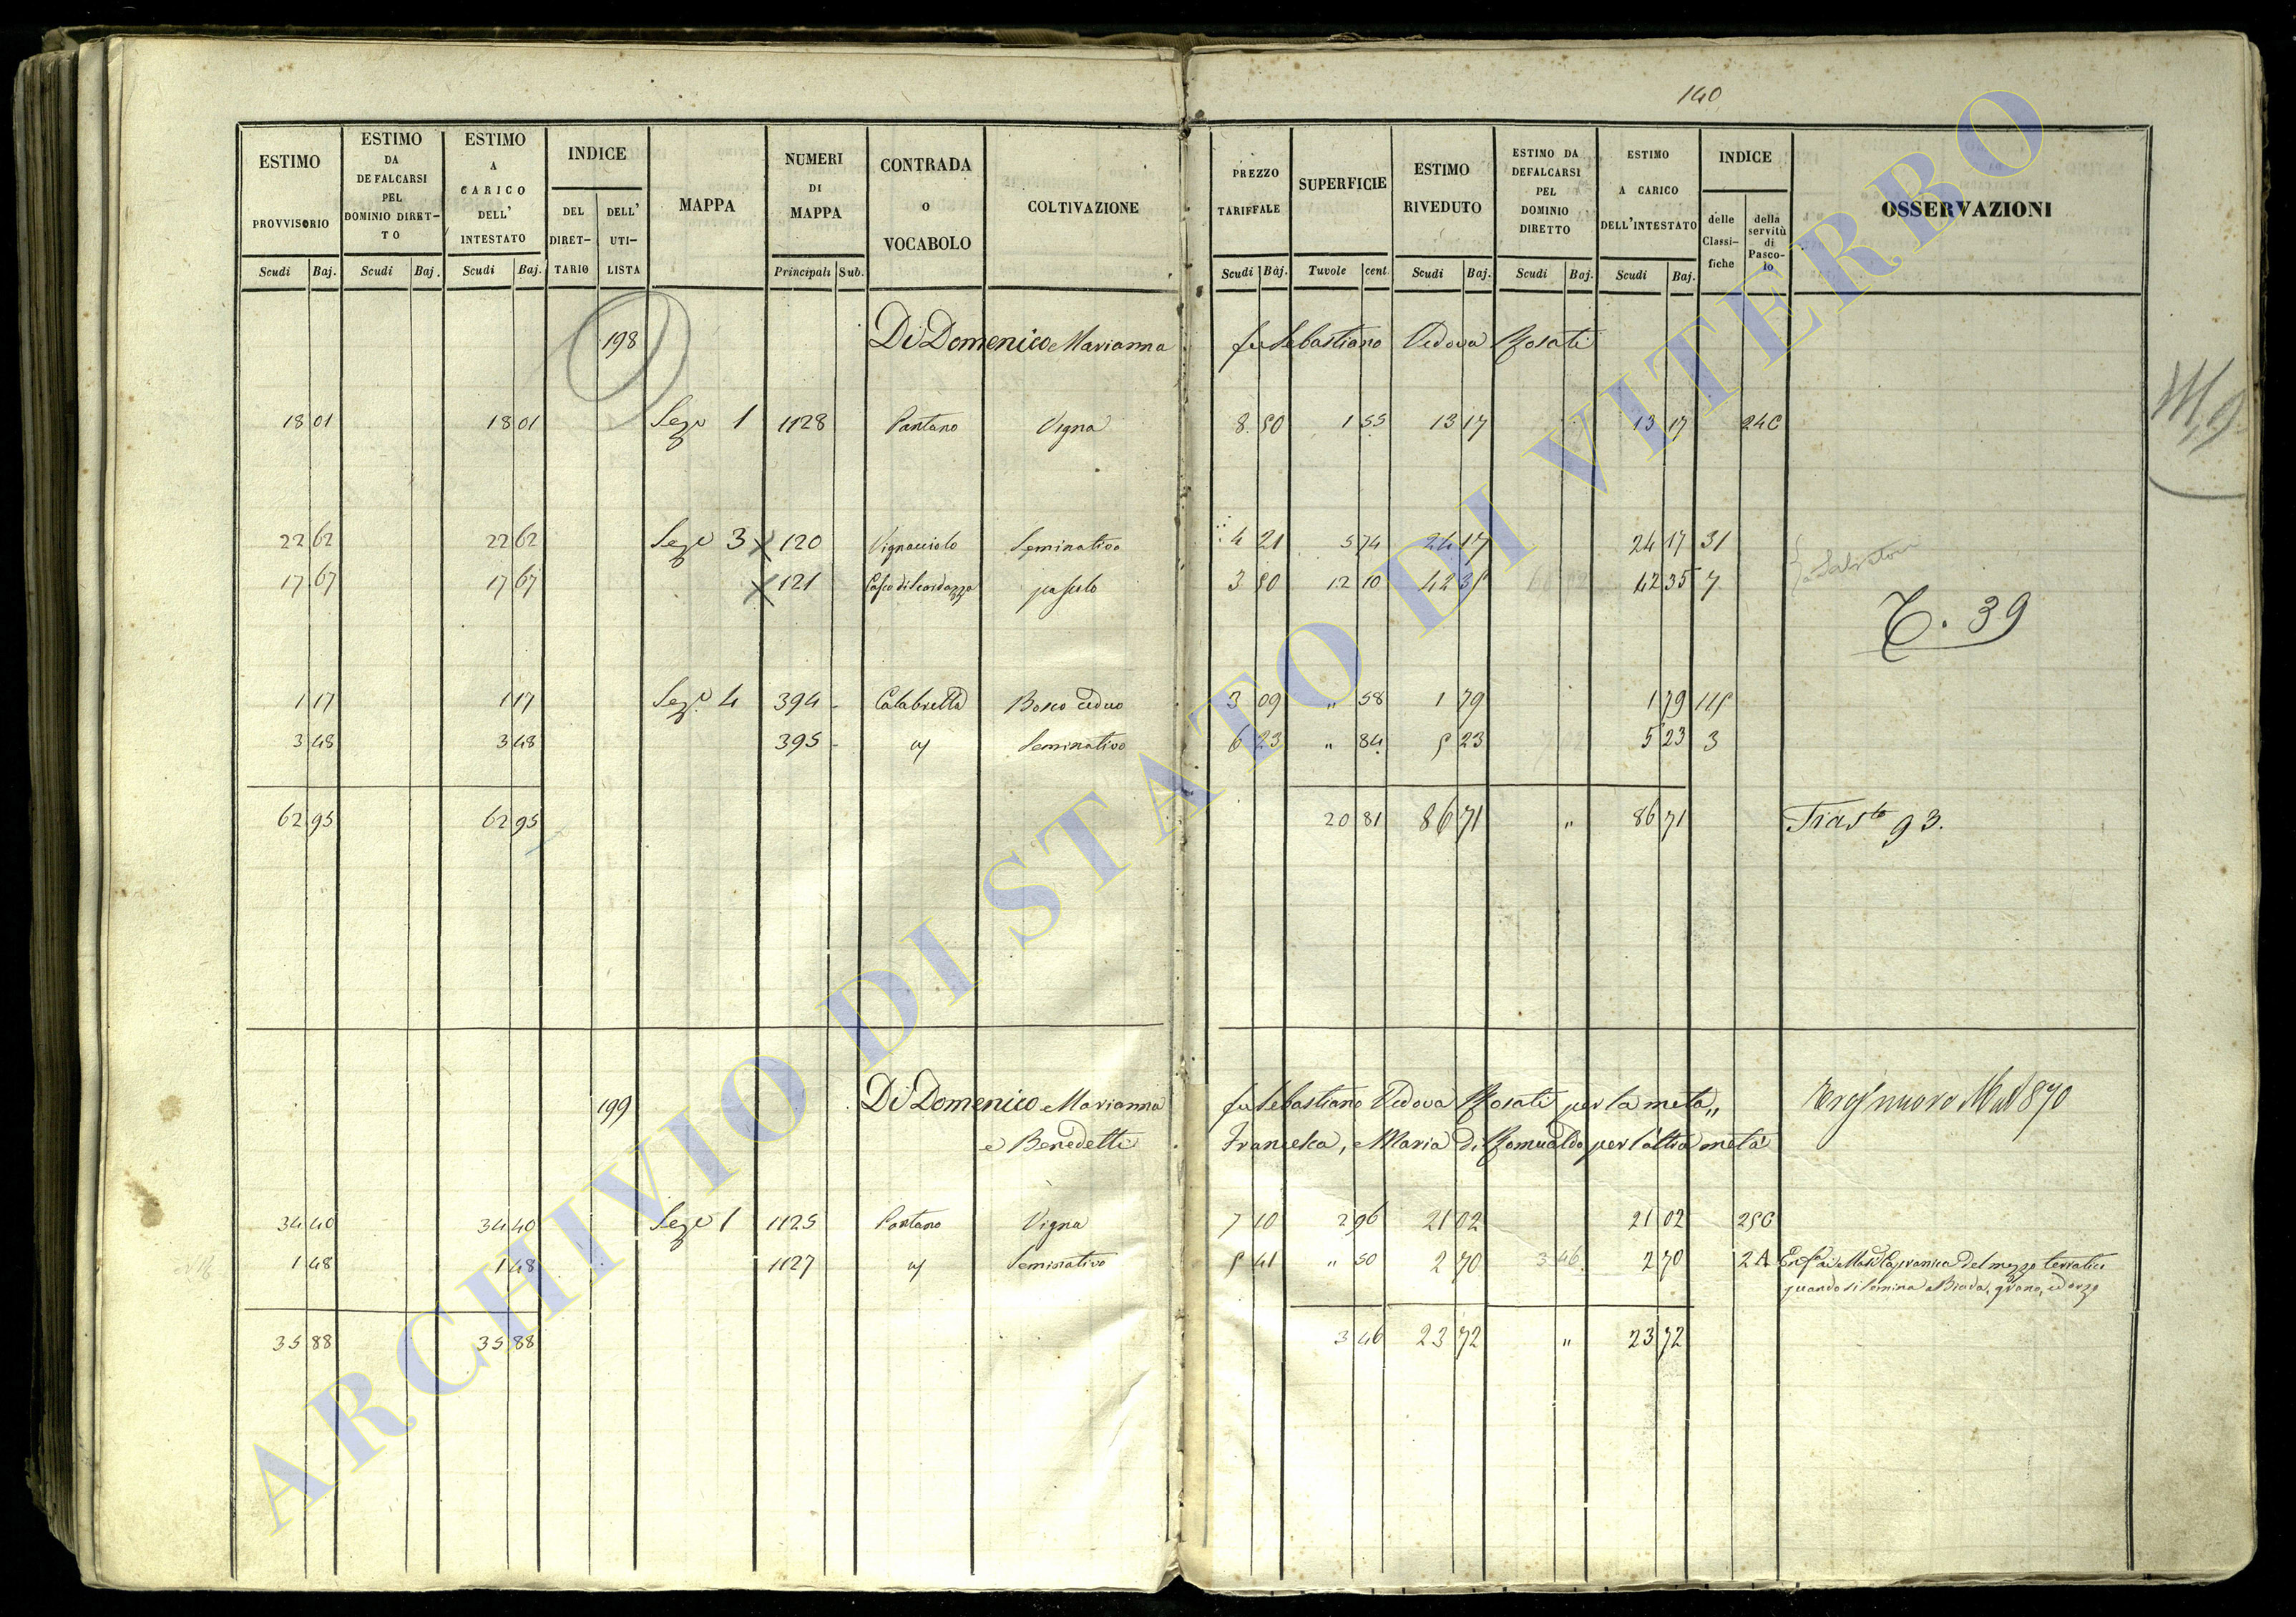 140
ESTIMO PROVVISORIO
ESTIMO DA DEFALCARSI PEL DOMINIO DIRET-TO
ESTIMO A CARICO DELL' INTESTATO
INDICE
DEL DIRET-TARIO
DELL' UTI-LISTA
MAPPA
NUMERI DI MAPPA
CONTRADA O VOCABOLO
COLTIVAZIONE
PREZZO TARIFFALE
SUPERFICIE
ESTIMO RIVEDUTO
ESTIMO DA DEFALCARSI PEL DOMINIO DIRETTO
ESTIMO A CARICO DELL'INTESTATO
INDICE
delle Classi-fiche
della servitù di Pasco-lo
OSSERVAZIONI
Scudi Baj. Scudi Baj. Scudi Baj. Principali Sub. Scudi Baj. Tavole cent. Scudi Baj. Scudi Baj. Scudi Baj.
198 Di Domenico Marianna fu Sebastiano Vedova Rosati
18 01 18 01 Seze 1 1128 Pantano Vigna 8 50 1 55 13 17 13 17 24C
22 62 22 62 Seze 3 120 Vignacciolo Seminativo 4 21 5 74 24 17 24 17 31
a Salvatori
17 67 17 67 121 pascolo 3 50 12 10 42 35 42 35 7
T. 39
1 17 1 17 Seze 4 394 Calabretta Bosco ceduo 3 09 " 58 1 79 1 79 115
3 48 3 48 395 Seminativo 6 23 " 84 5 23 5 23 3
62 95 62 95 20 81 86 71 " 86 71 93.
199 Di Domenico Marianna fu Sebastiano Vedova Rosati per la metà,,
e Benedetti Francesca, e Maria di Romualdo per l'altra metà
34 40 34 40 Seze 1 1125 Pantano Vigna 7 10 2 96 21 02 21 02 25C
1 48 1 48 1127 Seminativo 5 41 " 50 2 70 3 46 2 70 2A del mezzo terratico
quando si semina a Biada, grano, ed orzo
35 88 35 88 3 46 23 72 " 23 72
ARCHIVIO DI STATO DI VITERBO